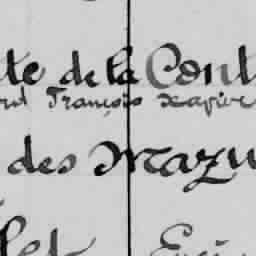 te de la Cont
rd François Xavier
des Mazu
let